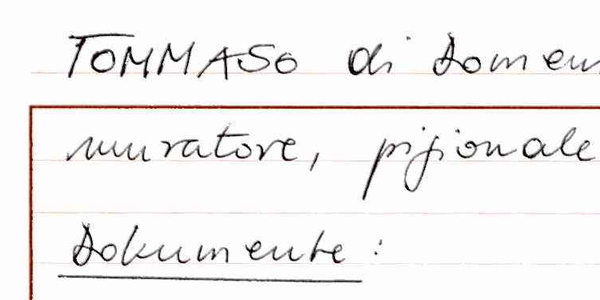 TOMMASO di Domen
muratore, pigionale
Dokumente: